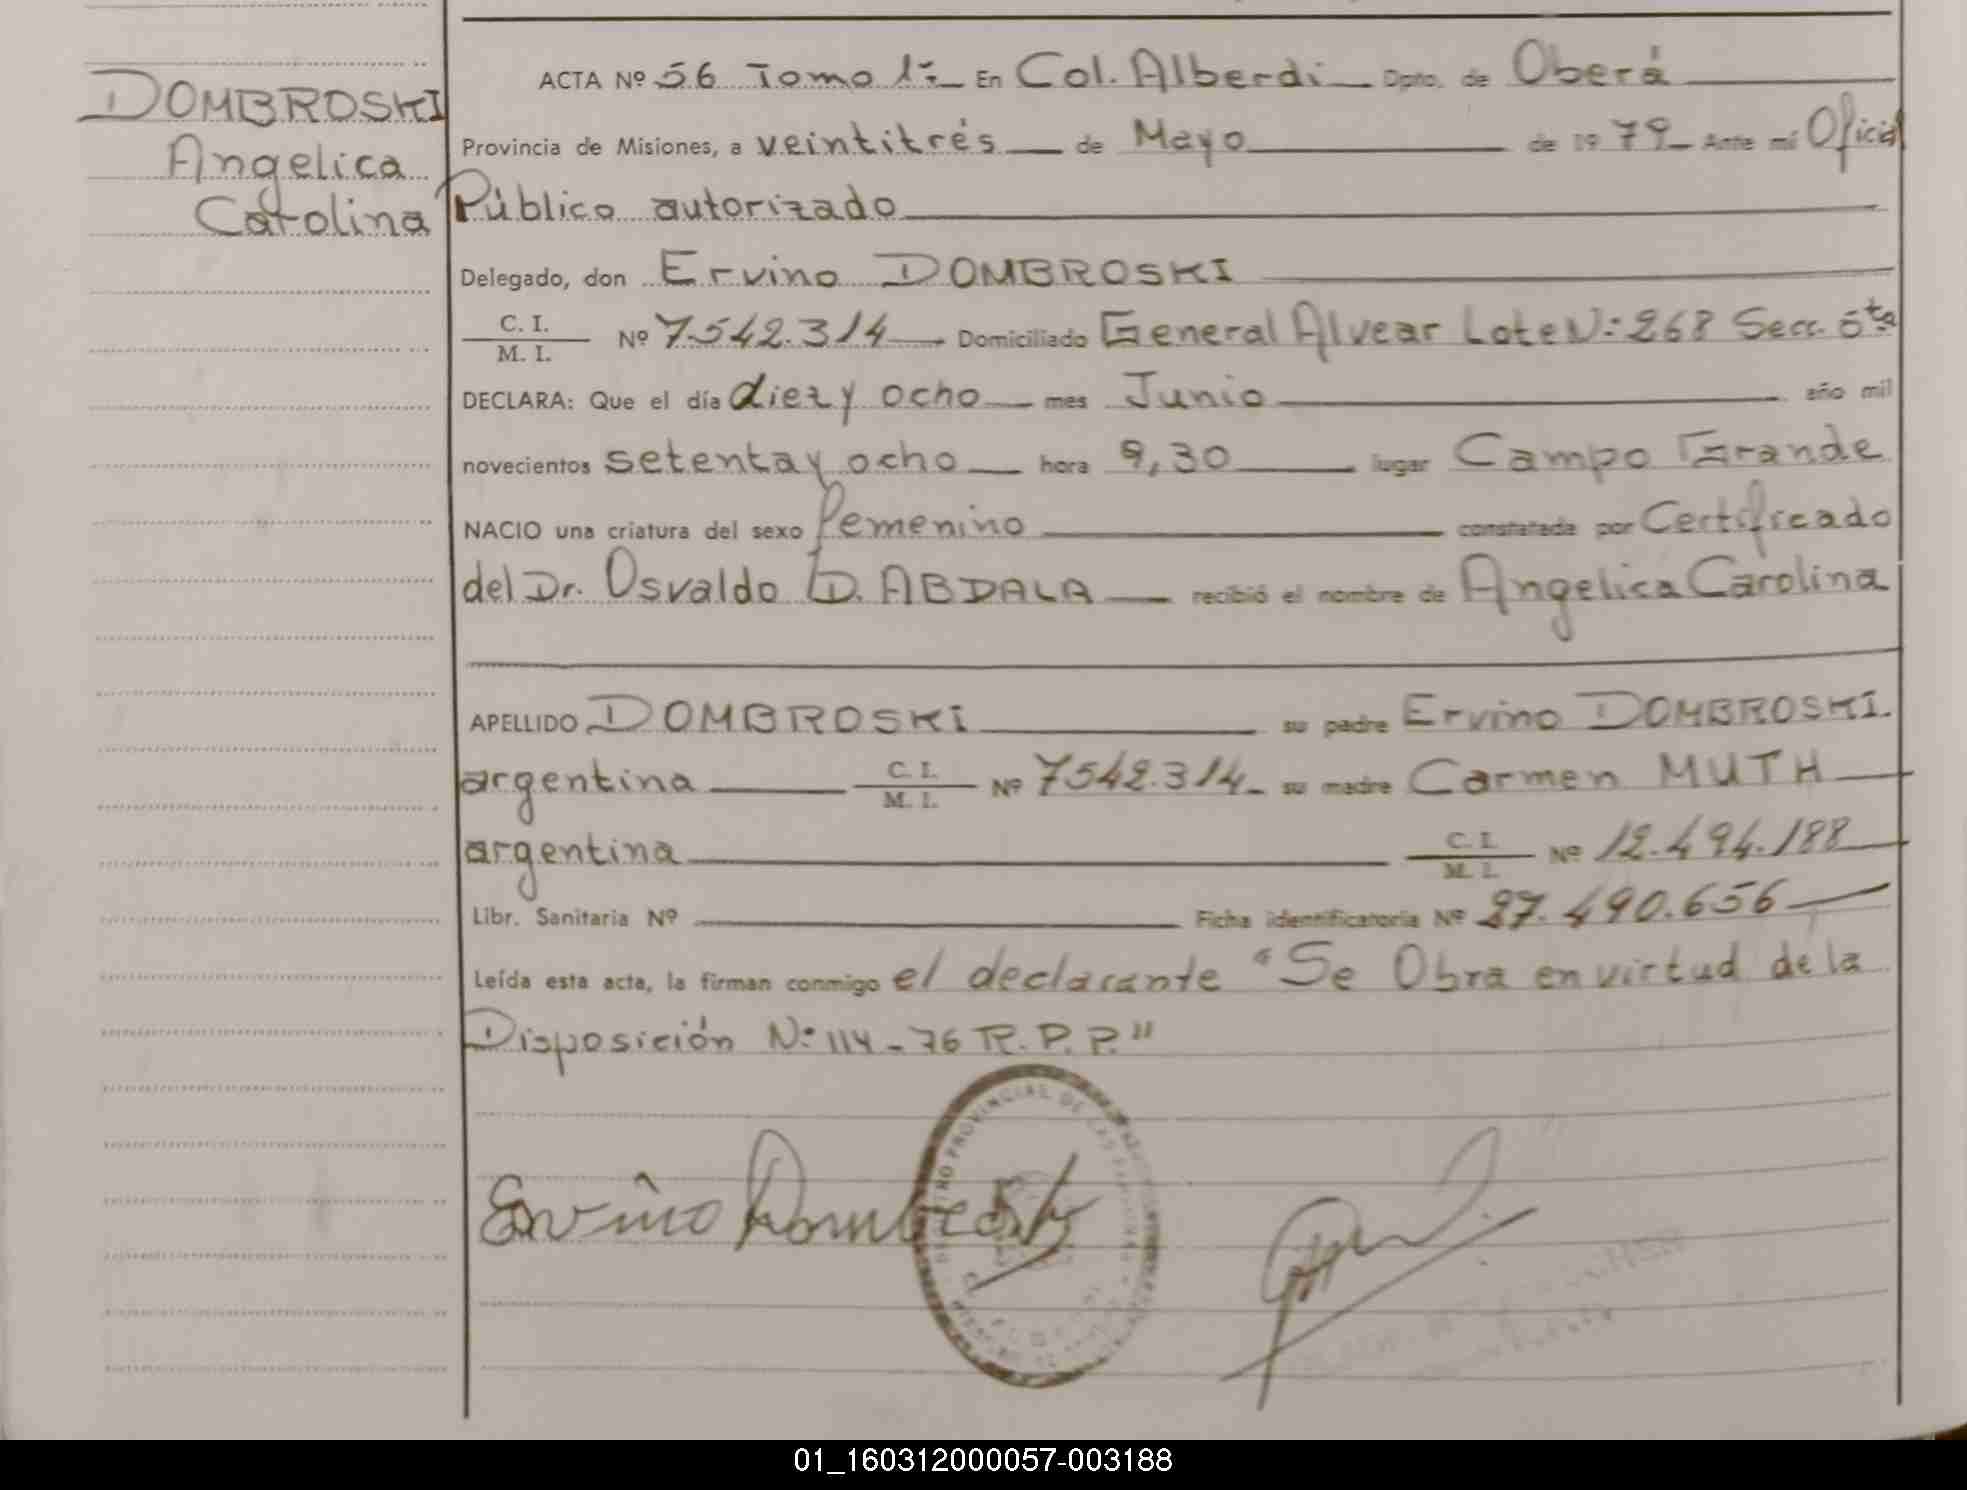 DOMBROSKI
Angelica
Carolina
ACTA Nº 56 Tomo 1º En Col. Alberdi Dpto. de Oberá
Provincia de Misiones, a veintitrés de Mayo de 1979 Ante mí Oficial
Público autorizado
Delegado, don Ervino DOMBROSKI
C. I.
M. I. Nº 7.542.314 Domiciliado General Alvear Lote Nº 268 Secc. 5ta
DECLARA: Que el día diez y ocho mes Junio año mil
novecientos setenta y ocho hora 9,30 lugar Campo Grande
NACIO una criatura del sexo Femenino constatada por Certificado
del Dr. Osvaldo D. ABDALA recibió el nombre de Angelica Carolina
APELLIDO DOMBROSKI su padre Ervino DOMBROSKI.
argentina C. I. M. I. Nº 7542.314 su madre Carmen MUTH
argentina C. I. M. I. Nº 12.494.188
Libr. Sanitaria Nº Ficha identificatoria Nº 27.490.656
Leída esta acta, la firman conmigo el declarante "Se Obra en virtud de la
Disposición Nº 114-76 R.P.P."
Ervino Dombroski
PROVINCIAL DE LAS
01_160312000057-003188